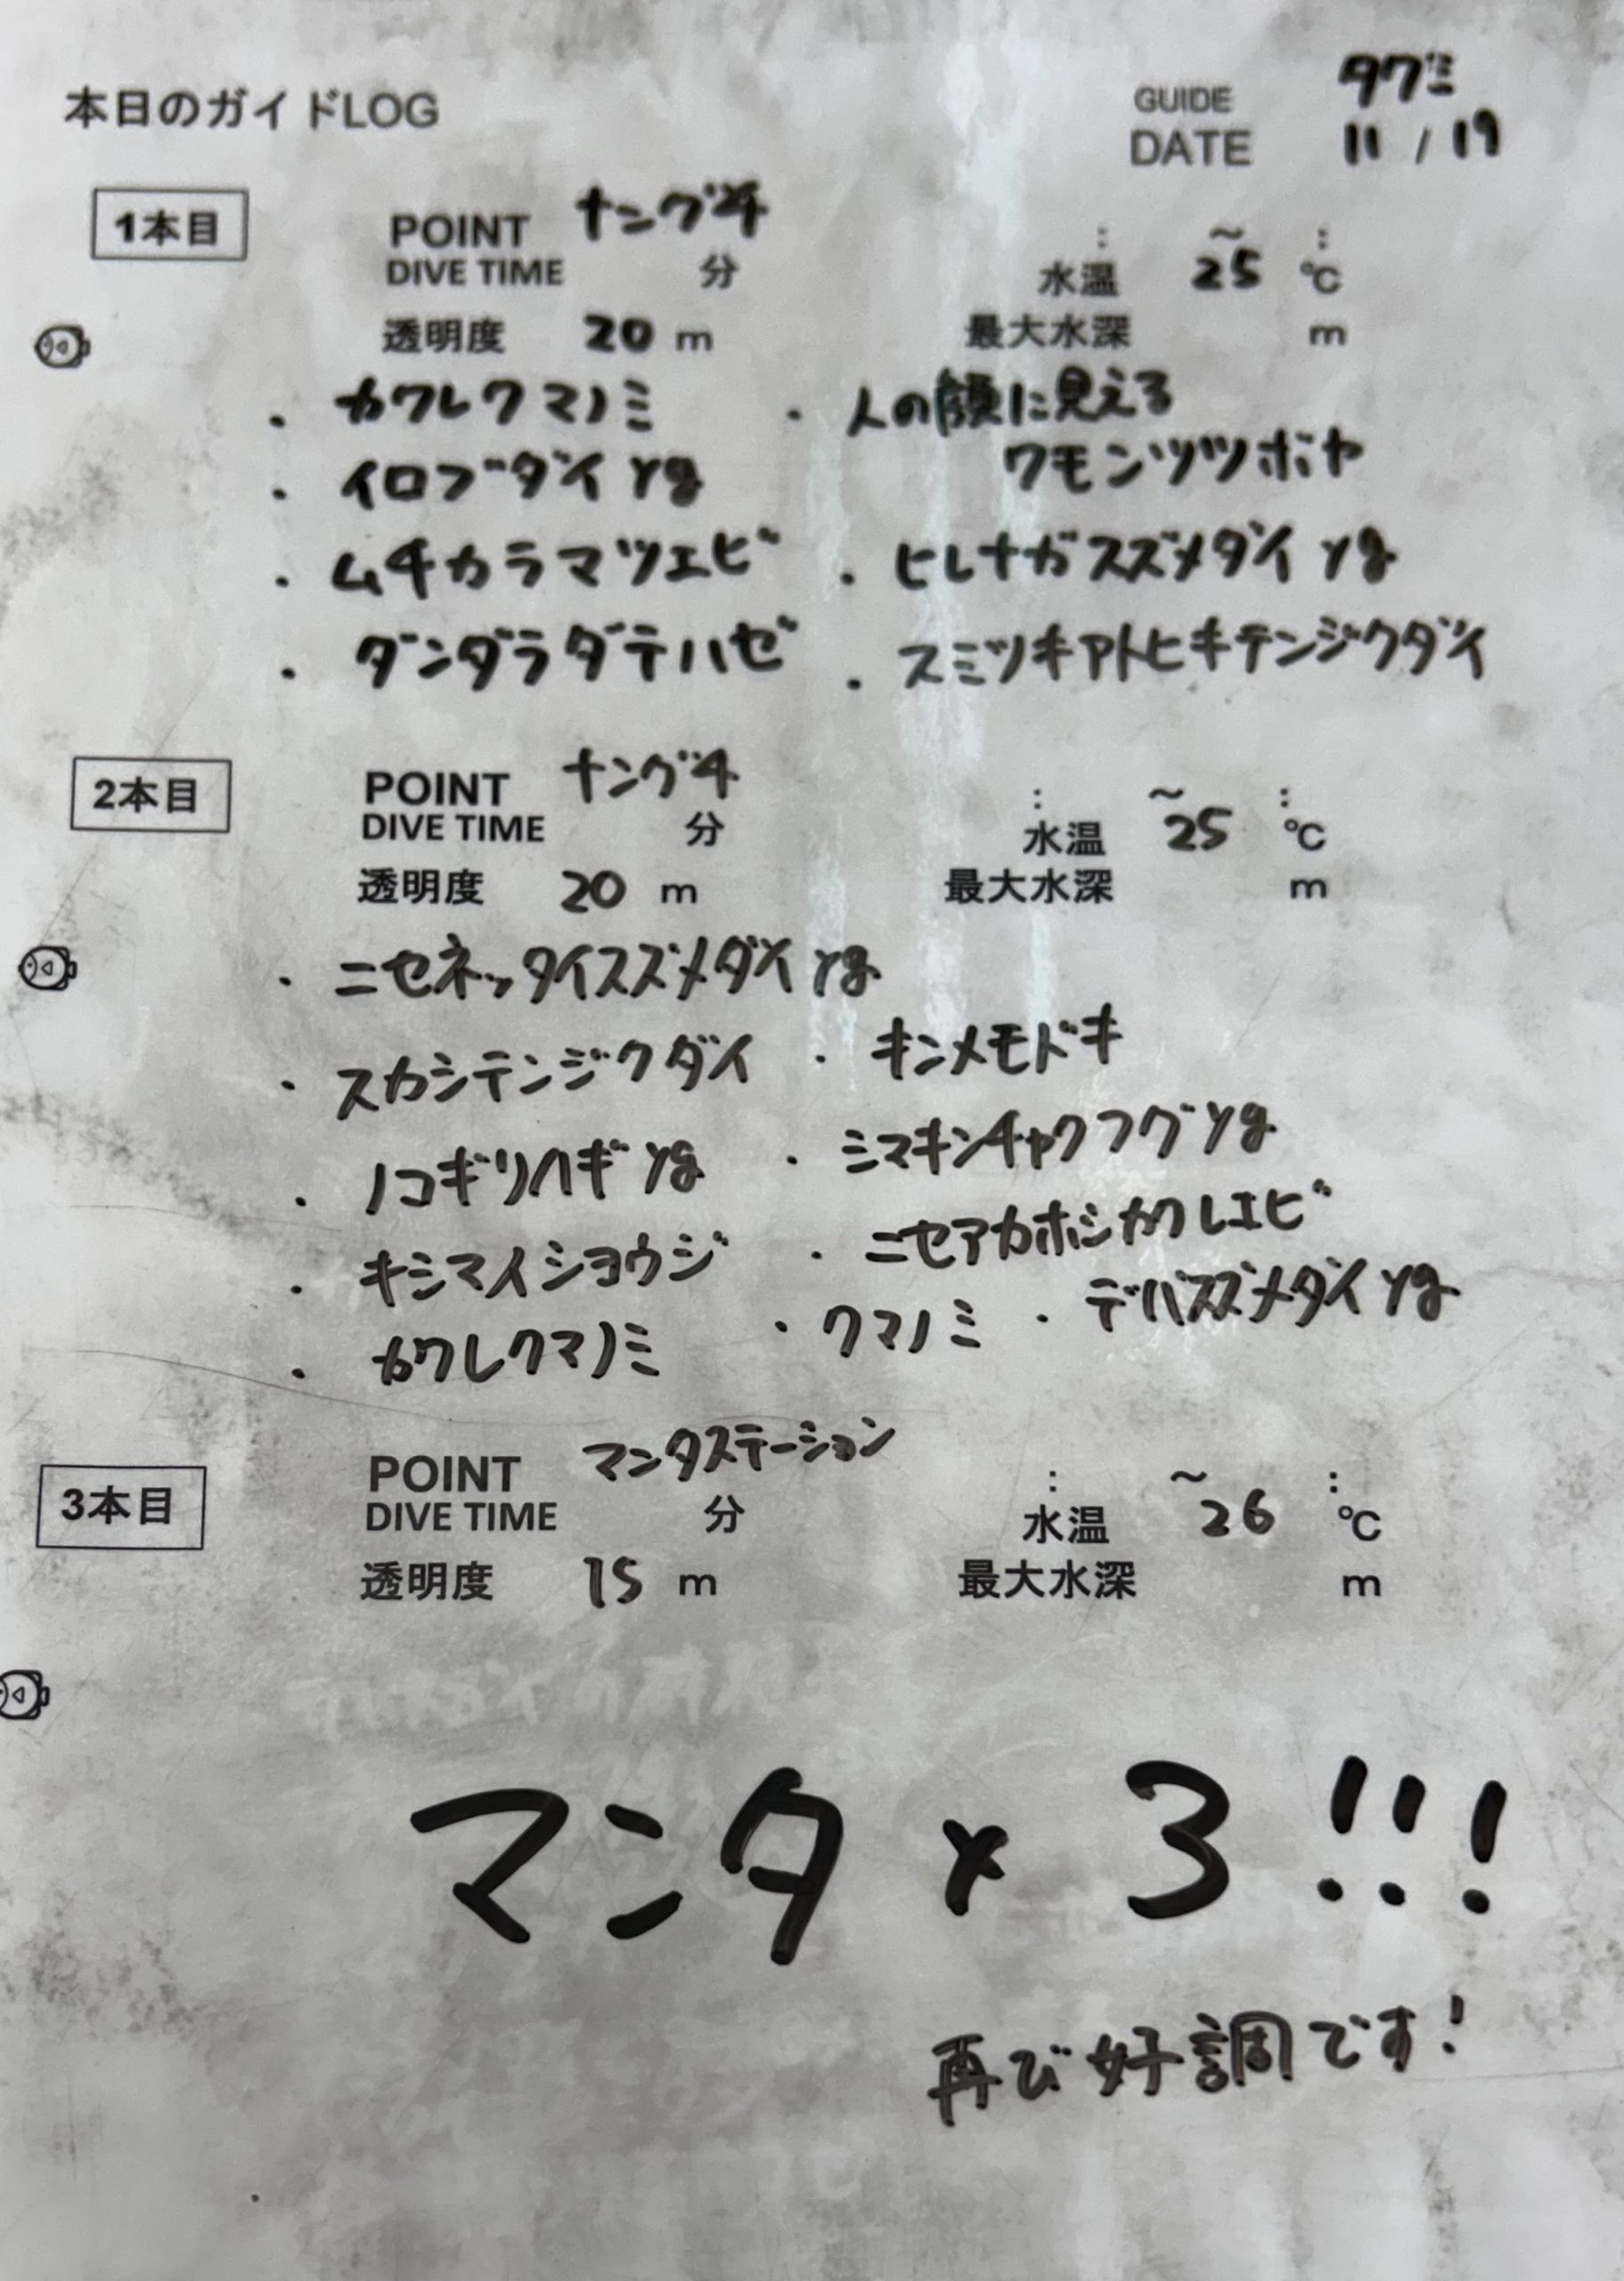 本日のガイドLOG
GUIDE タクミ
DATE 11 / 19
1本目
POINT ナングチ : ～ :
DIVE TIME 分 水温 25 ℃
透明度 20 m 最大水深 m
・カクレクマノミ ・人の顔に見える
ワモンツツボヤ
・イロブダイ yg
・ムチカラマツエビ ・ヒレナガスズメダイ yg
・ダンダラダテハゼ ・スミツキアトヒキテンジクダイ
2本目
POINT ナングチ : ～ :
DIVE TIME 分 水温 25 ℃
透明度 20 m 最大水深 m
・ニセネッタイスズメダイ yg
・スカシテンジクダイ ・キンメモドキ
・ノコギリハギ yg ・シマキンチャクフグ yg
・キシマイショウジ ・ニセアカホシカクレエビ
・カクレクマノミ ・クマノミ ・デバスズメダイ yg
3本目
POINT マンタステーション : ～ :
DIVE TIME 分 水温 26 ℃
透明度 15 m 最大水深 m
マンタ × 3 !!!
再び好調です!